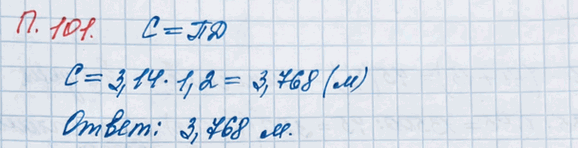 П. 101. C = ПД
C = 3,14 · 1,2 = 3,768 (м)
Ответ: 3,768 м.